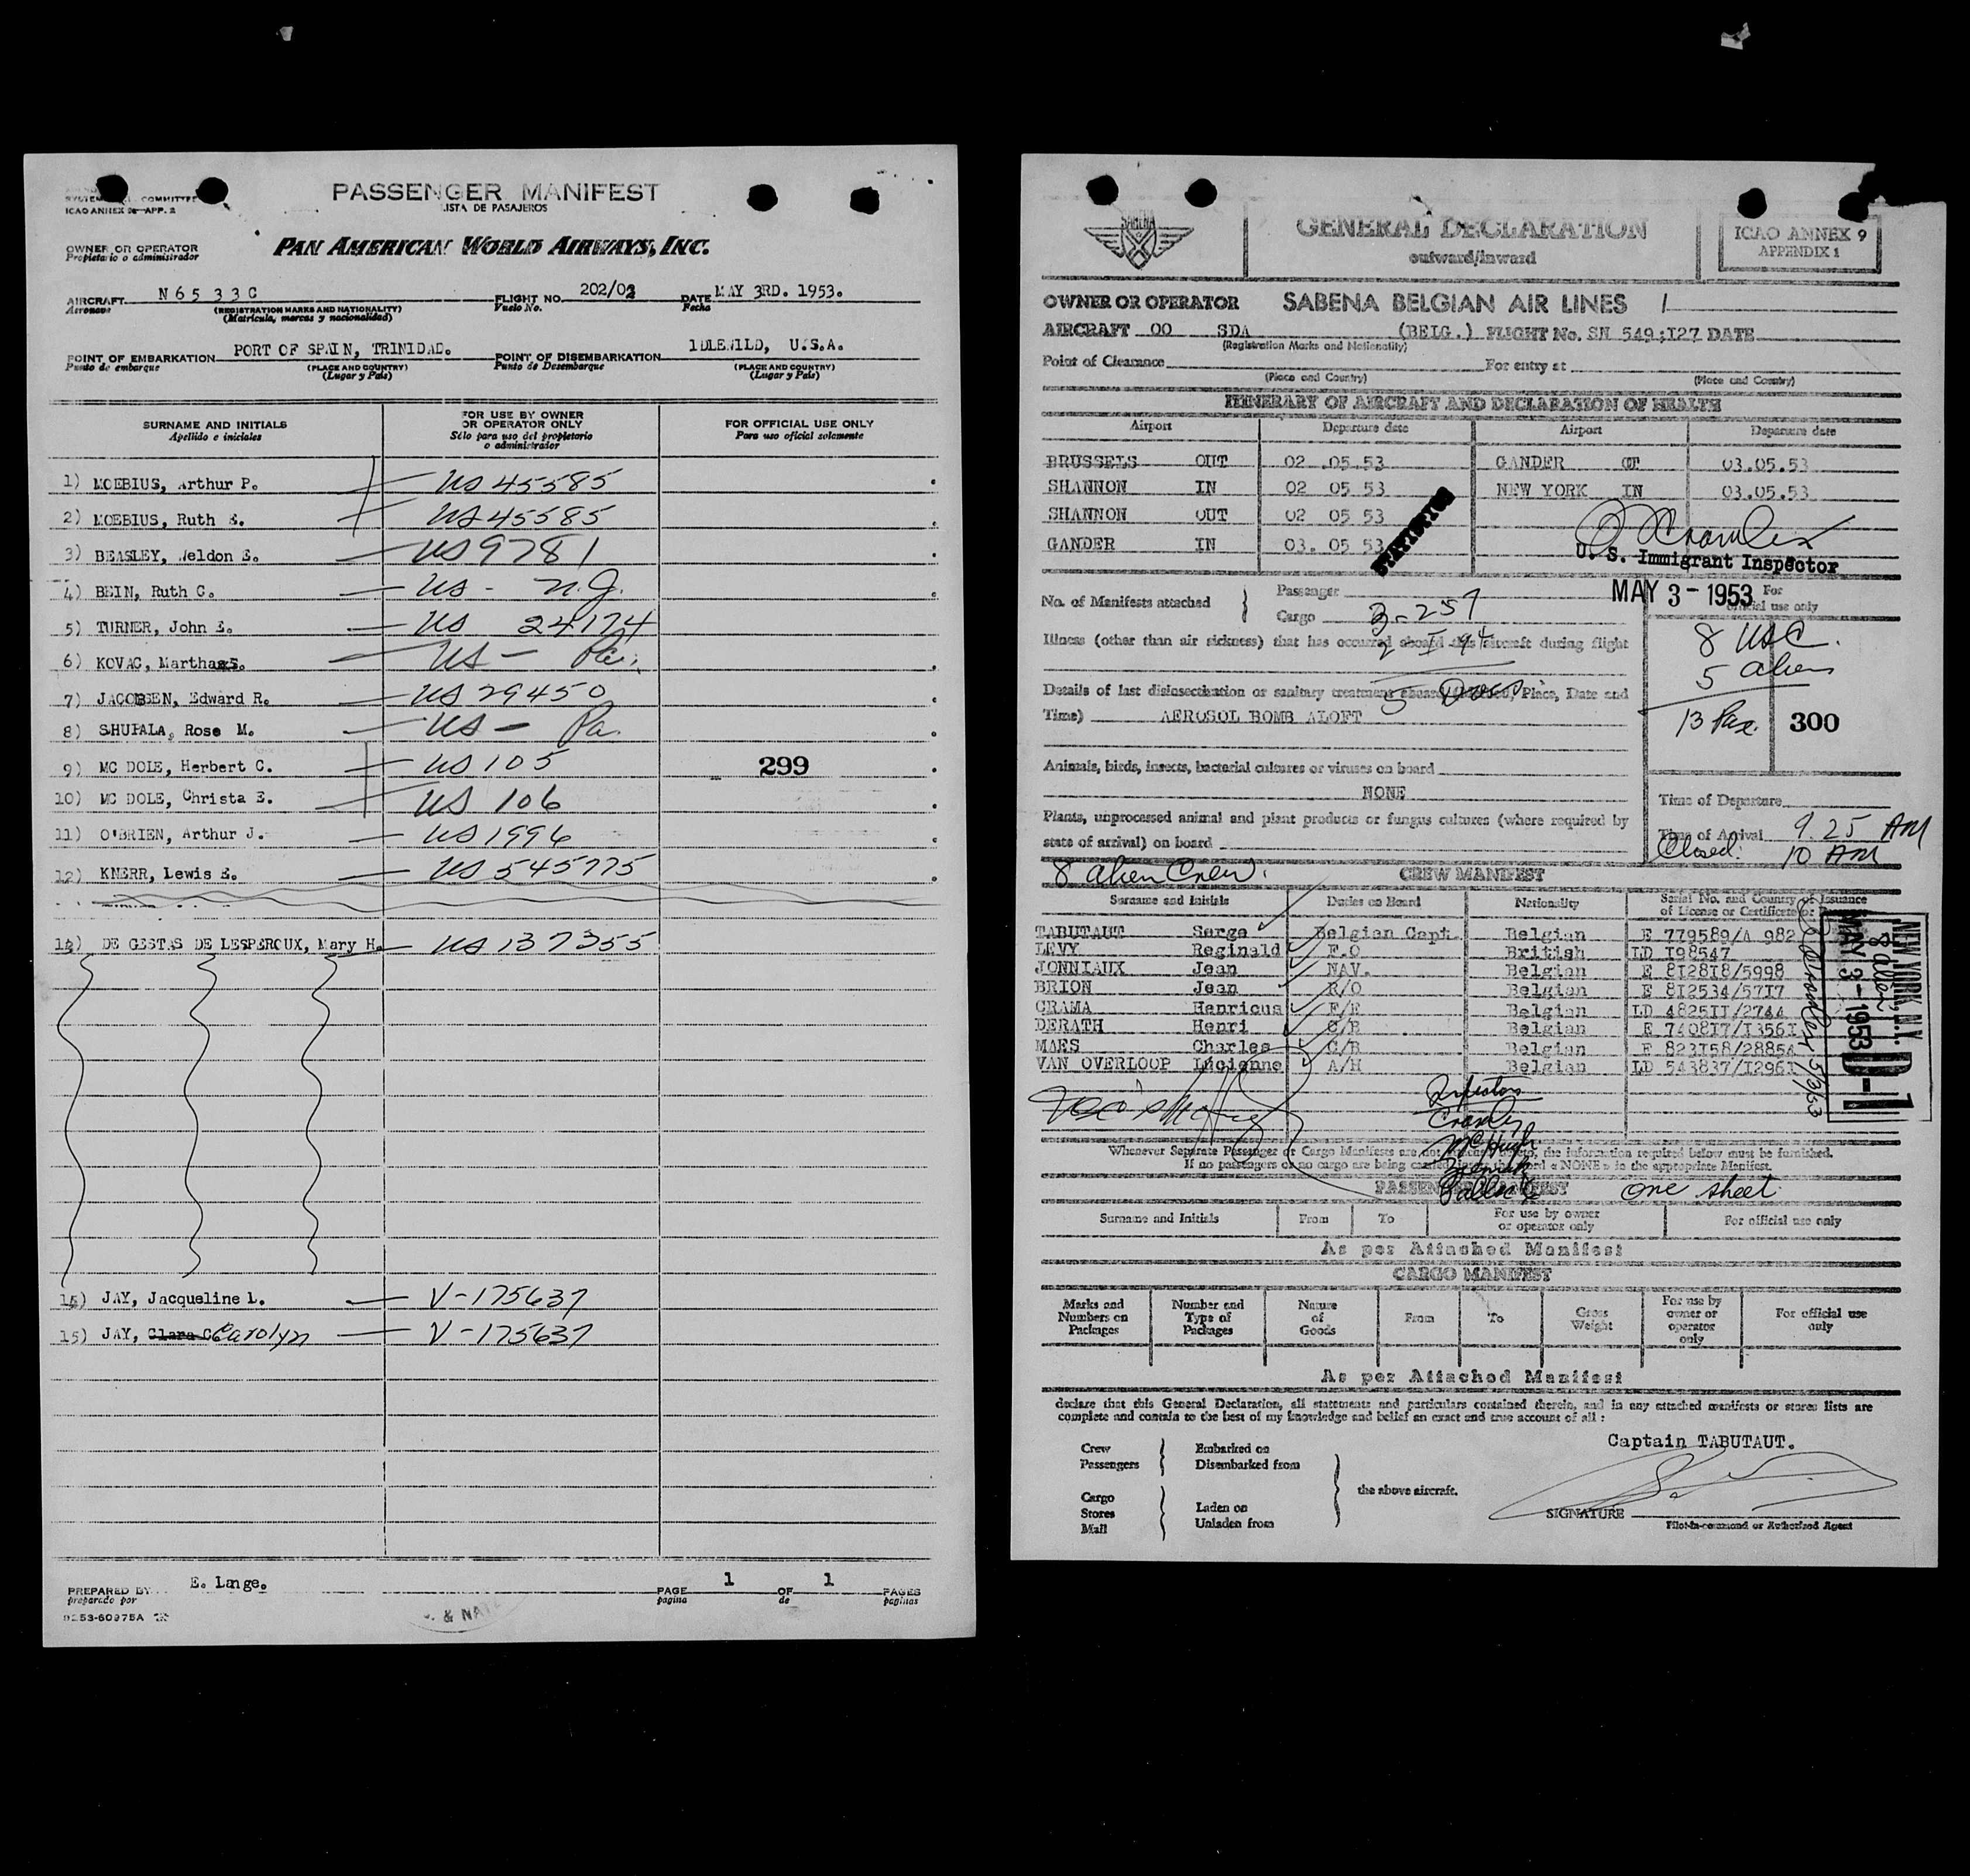 PASSENGER MANIFEST
LISTA DE PASAJEROS
COMMITTEE
ICAO ANNEX 9- APP. 2
OWNER OR OPERATOR
Propietario o administrador
PAN AMERICAN WORLD AIRWAYS, INC.
AIRCRAFT N6533C FLIGHT NO. 202/03 DATE MAY 3RD. 1953.
Aeronave (REGISTRATION MARKS AND NATIONALITY) Vuelo No. Fecha
(Matrícula, marcas y nacionalidad)
POINT OF EMBARKATION PORT OF SPAIN, TRINIDAD. POINT OF DISEMBARKATION IDLEWILD, U.S.A.
Punto de embarque (PLACE AND COUNTRY) Punto de Desembarque (PLACE AND COUNTRY)
(Lugar y País) (Lugar y País)
SURNAME AND INITIALS
Apellido e iniciales
FOR USE BY OWNER
OR OPERATOR ONLY
Sólo para uso del propietario
o administrador
FOR OFFICIAL USE ONLY
Para uso oficial solamente
1) MOEBIUS, Arthur P. US 45585
2) MOEBIUS, Ruth E. US 45585
3) BEASLEY, Weldon E. US 9781
4) BEIN, Ruth C. US - N.J.
5) TURNER, John E. US 24174
6) KOVAC, Martha S. US - Pa.
7) JACOBSEN, Edward R. US 29450
8) SHUPALA, Rose M. US - Pa.
9) MC DOLE, Herbert C. US 105 299
10) MC DOLE, Christa E. US 106
11) O'BRIEN, Arthur J. US 1996
12) KNERR, Lewis E. US 545775
13) DE GESTAS DE LESPEROUX, Mary H. US 137355
14) JAY, Jacqueline L. V-175637
15) JAY, Clara C. Carolyn V-175637
PREPARED BY E. Lange. PAGE 1 OF 1 PAGES
preparado por página de páginas
0253-60975A
& NAT
SABENA
GENERAL DECLARATION
outward/inward
ICAO ANNEX 9
APPENDIX 1
OWNER OR OPERATOR SABENA BELGIAN AIR LINES
AIRCRAFT OO SDA (BELG.) FLIGHT No. SN 549;I27 DATE
(Registration Marks and Nationality)
Point of Clearance For entry at
(Place and Country) (Place and Country)
ITINERARY OF AIRCRAFT AND DECLARATION OF HEALTH
Airport Departure date Airport Departure date
BRUSSELS OUT 02 .05.53 GANDER OUT 03.05.53
SHANNON IN 02 05 53 NEW YORK IN 03.05.53
SHANNON OUT 02 05 53
GANDER IN 03. 05 53
STATISTICS
U. S. Immigrant Inspector
MAY 3 - 1953
For
official use only
No. of Manifests attached
Passenger
Cargo
3-257
2 I 94
5 Docs
Illness (other than air sickness) that has occurred aboard this aircraft during flight
Details of last disinsectisation or sanitary treatment aboard Place, Date and
Time) AEROSOL BOMB ALOFT
8 USC.
5 alien
13 Pax.
300
Animals, birds, insects, bacterial cultures or viruses on board
NONE
Plants, unprocessed animal and plant products or fungus cultures (where required by
state of arrival) on board
Time of Departure
Time of Arrival 9.25 AM
Closed: 10 AM
8 alien Crew.
CREW MANIFEST
Surname and Initials Duties on Board Nationality Serial No. and Country of Issuance
of License or Certificate or Passport
TABUTAUT Serge Belgian Capt. Belgian E 779589/A 982
LEVY Reginald F.O British LD I98547
JONNIAUX Jean NAV. Belgian E 8I28I8/5998
BRION Jean R/O Belgian E 8I2534/57I7
CRAMA Henricus F/E Belgian LD 4825II/2744
DERATH Henri C/B Belgian E 7408I7/I356I
MAES Charles C/B Belgian E 823I58/28854
VAN OVERLOOP Lucienne A/H Belgian LD 543837/I296I
NEW YORK, N.Y.
8 alien
MAY 3 - 1953
D-1
5/3/53
Inspectors
Cramley
McHugh
Whenever Separate Passenger or Cargo Manifests are not the information required below must be furnished.
If no passengers or no cargo are being carried word « NONE » in the appropriate Manifest.
PASSENGER MANIFEST one sheet
Surname and Initials From To For use by owner
or operator only For official use only
As per Attached Manifest
CARGO MANIFEST
Marks and
Numbers on
Packages
Number and
Type of
Packages
Nature
of
Goods
From
To
Gross
Weight
For use by
owner or
operator
only
For official use
only
As per Attached Manifest
declare that this General Declaration, all statements and particulars contained therein, and in any attached manifests or stores lists are
complete and contain to the best of my knowledge and belief an exact and true account of all :
Captain TABUTAUT.
Crew
Passengers
Embarked on
Disembarked from
Cargo
Stores
Mail
Laden on
Unladen from
the above aircraft.
SIGNATURE
Pilot-in-command or Authorised Agent